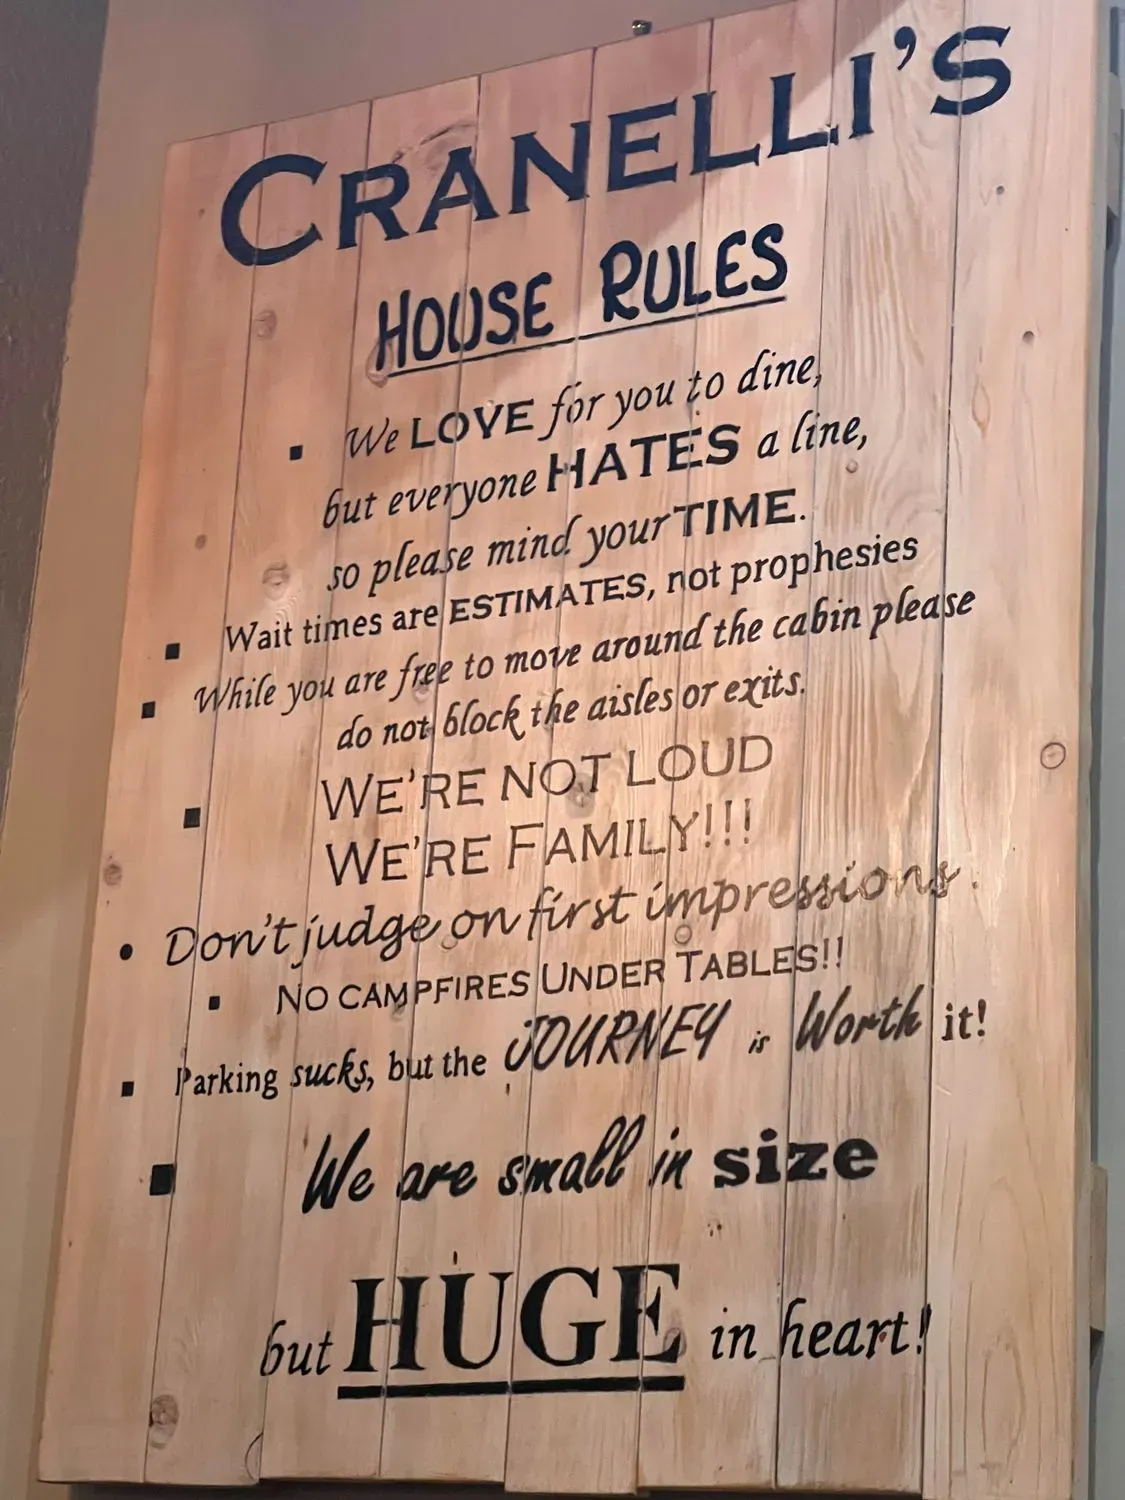 CRANELLI'S
HOUSE RULES
▪ We LOVE for you to dine,
but everyone HATES a line,
so please mind your TIME.
▪ Wait times are ESTIMATES, not prophesies
▪ While you are free to move around the cabin please
do not block the aisles or exits.
▪ WE'RE NOT LOUD
WE'RE FAMILY!!!
• Don't judge on first impressions.
▪ NO CAMPFIRES UNDER TABLES!!
▪ Parking sucks, but the JOURNEY is Worth it!
▪ We are small in size
but HUGE in heart!